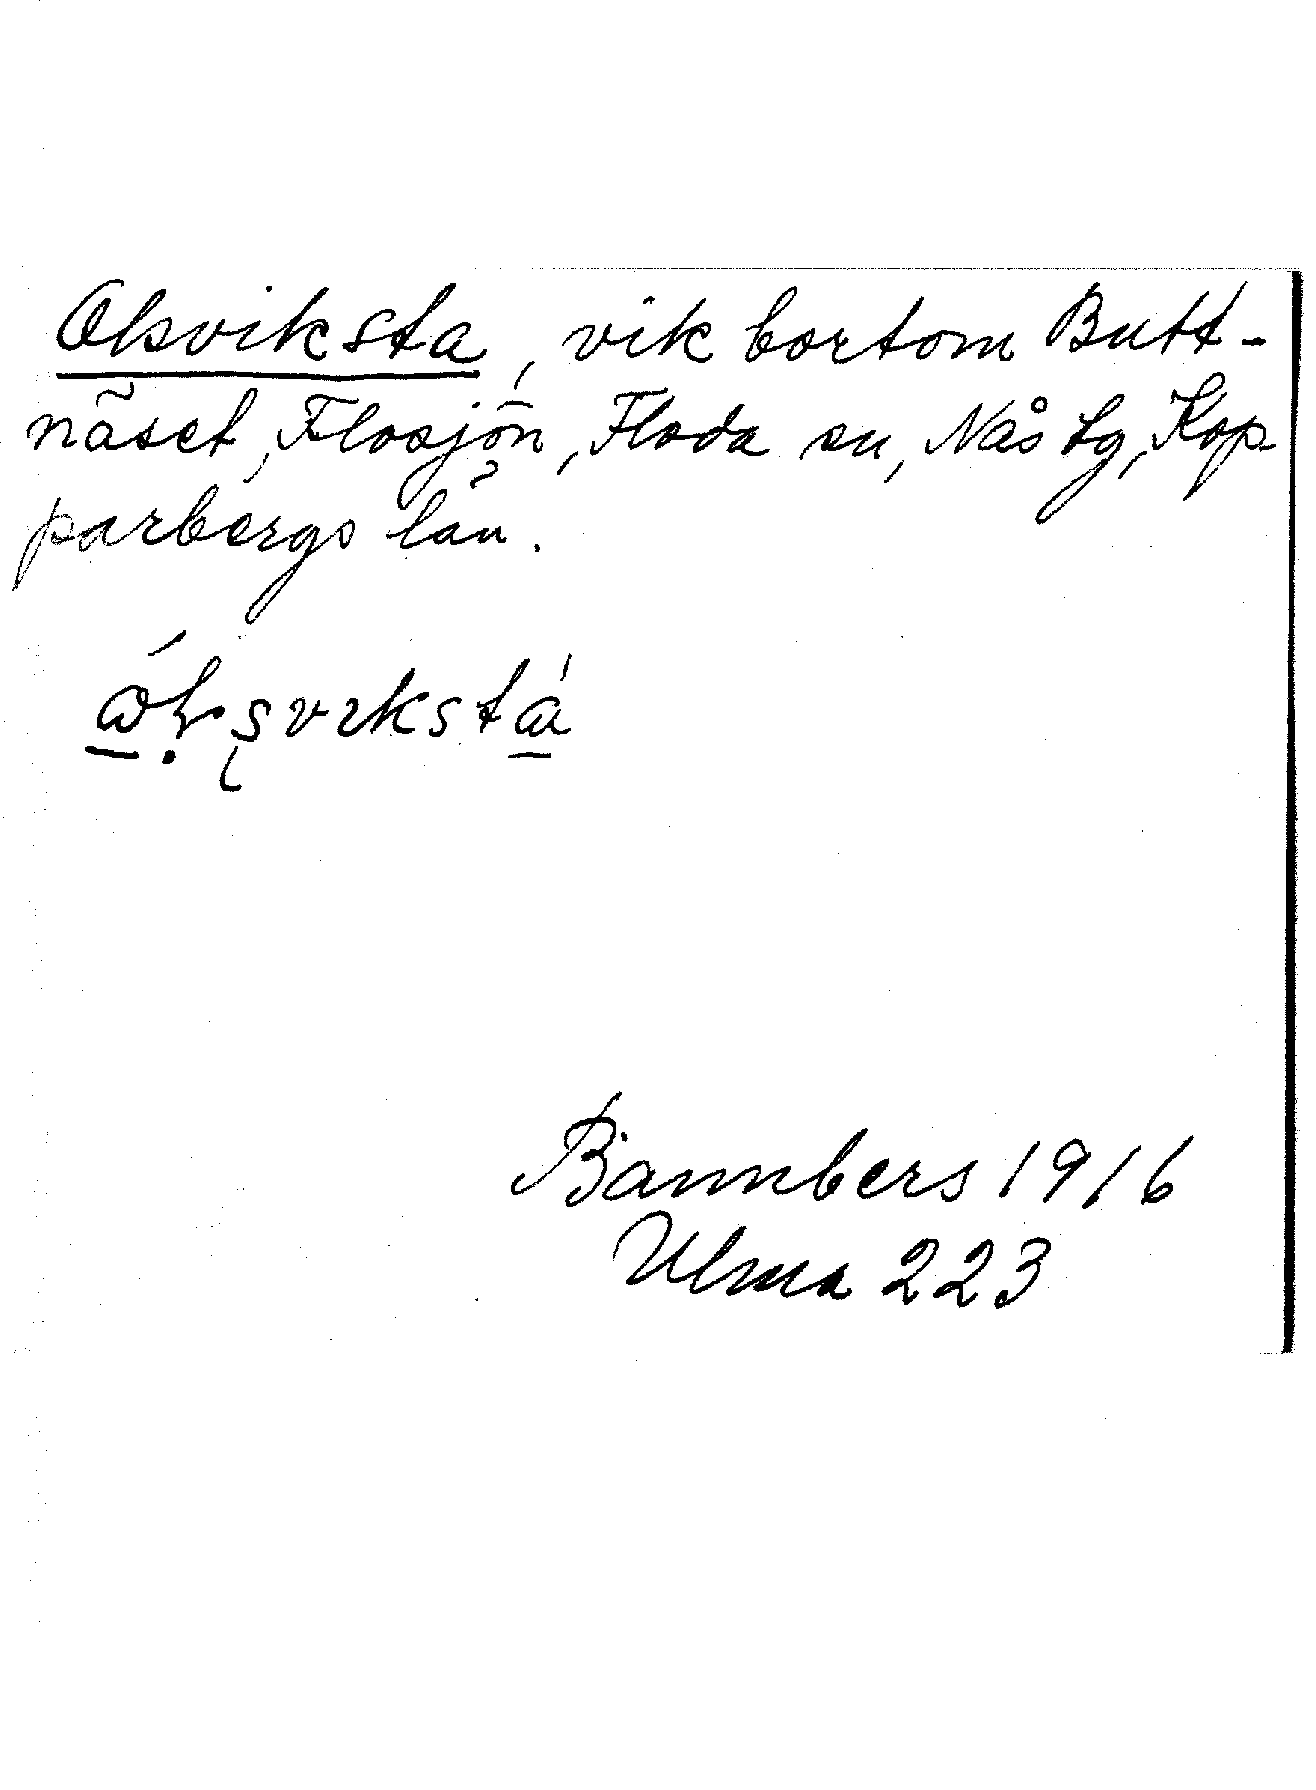 Olsviksta, vik bortom Butt-
näset, Flosjön, Floda sn, Nås tg, Kop
parbergs län.
Bannbers 1916
Ulma 223